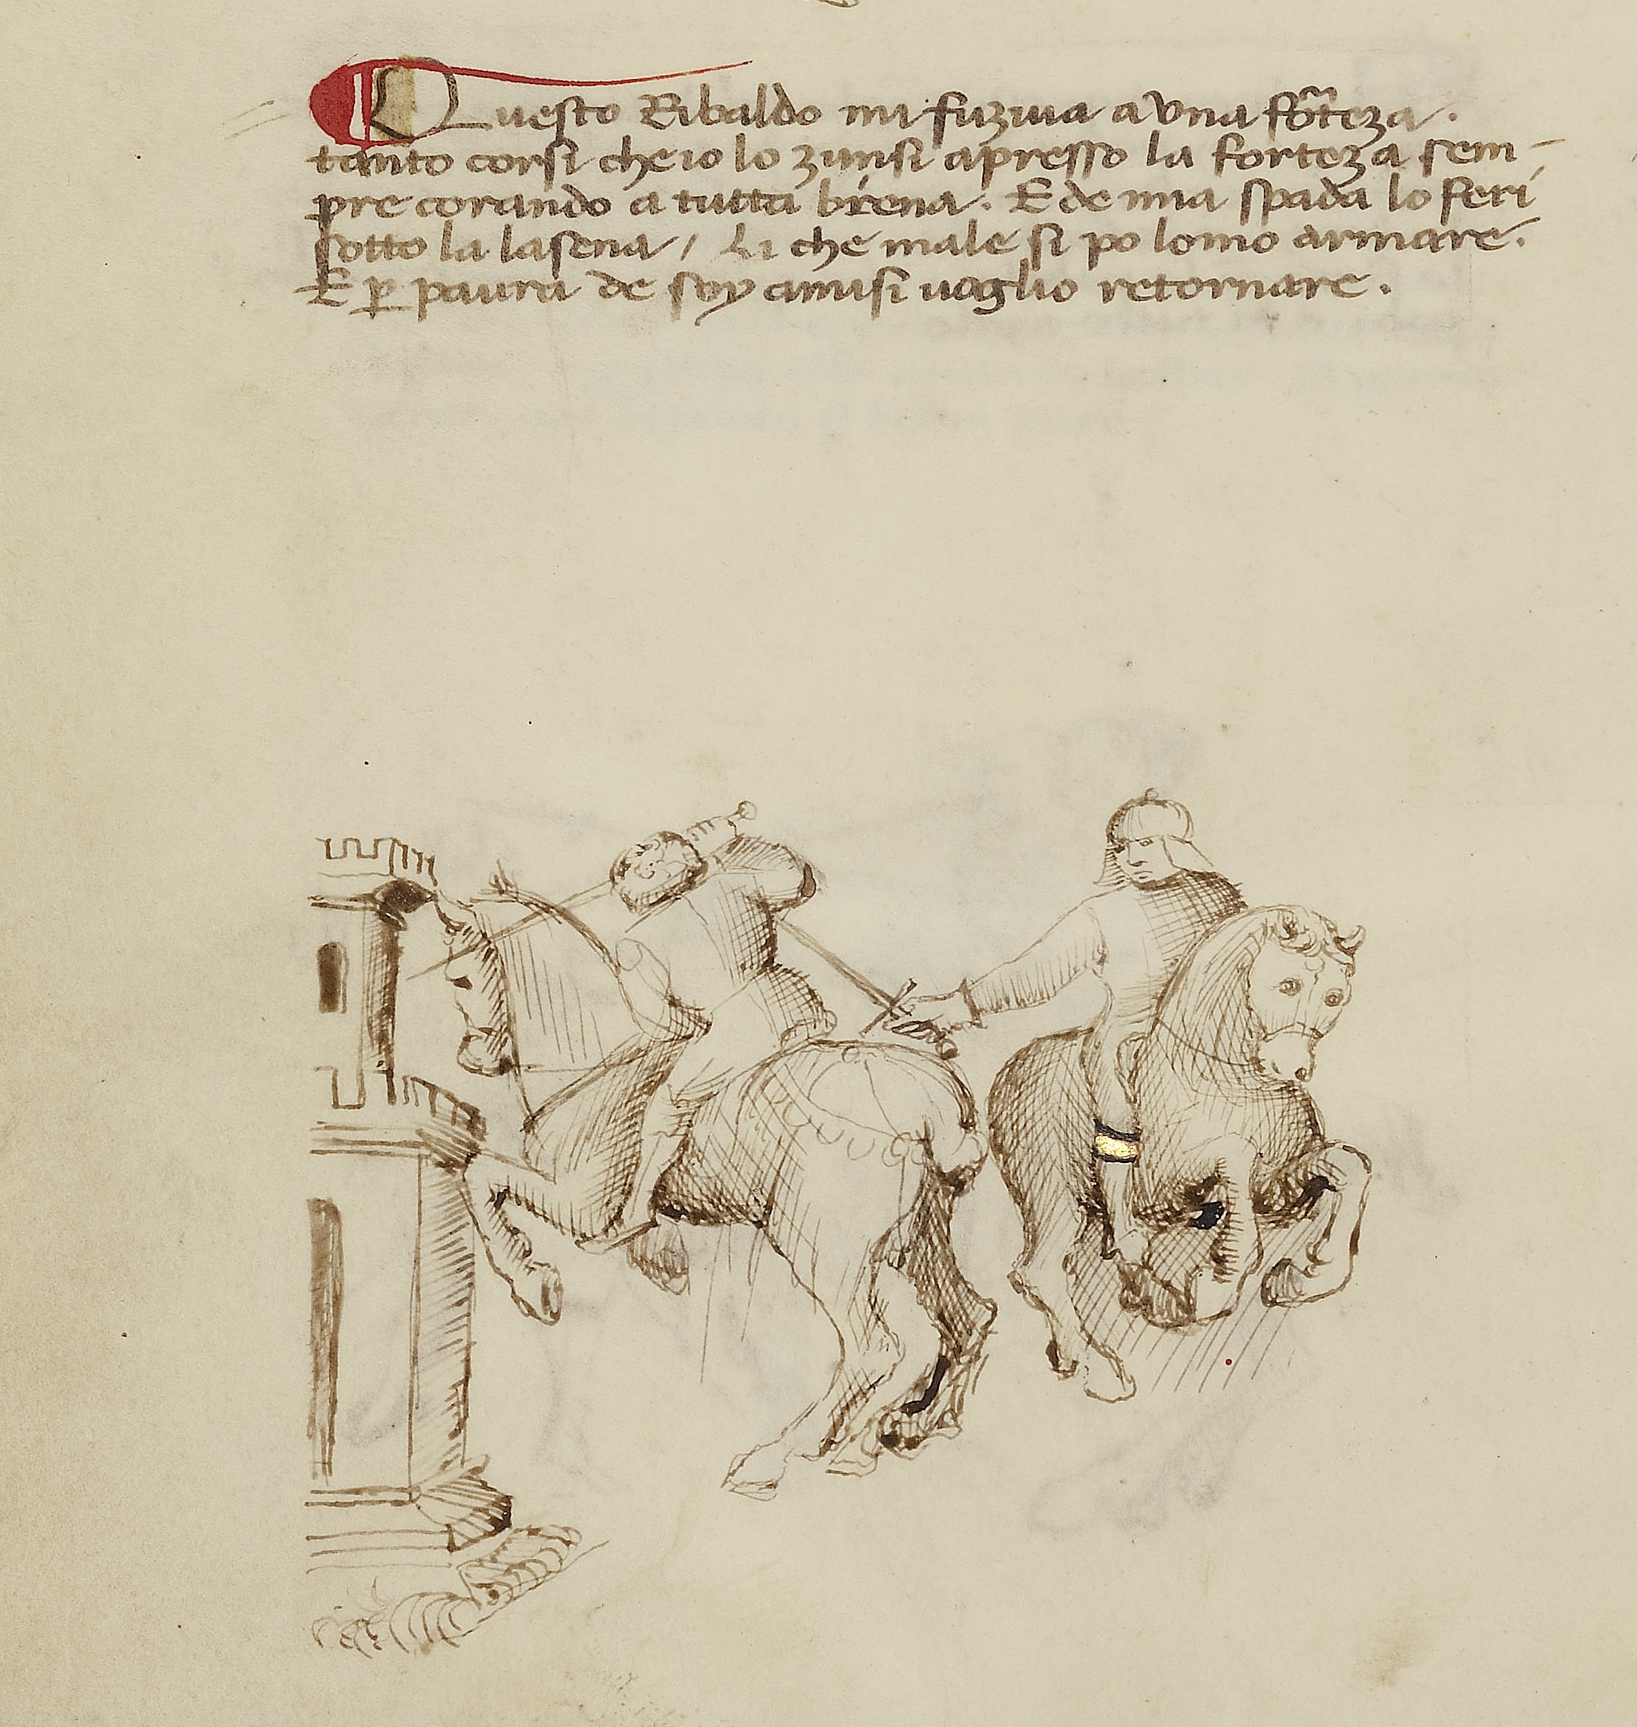 Questo Ribaldo mi fuziva a una fōrteza.
tanto corsi che io lo zunsi apresso la forteza sem-
pre corando a tutta brena. E de mia spada lo feri
sotto la lasena / Li che male si po lomo armare.
E p̱ paura de soy amisi voglio retornare.